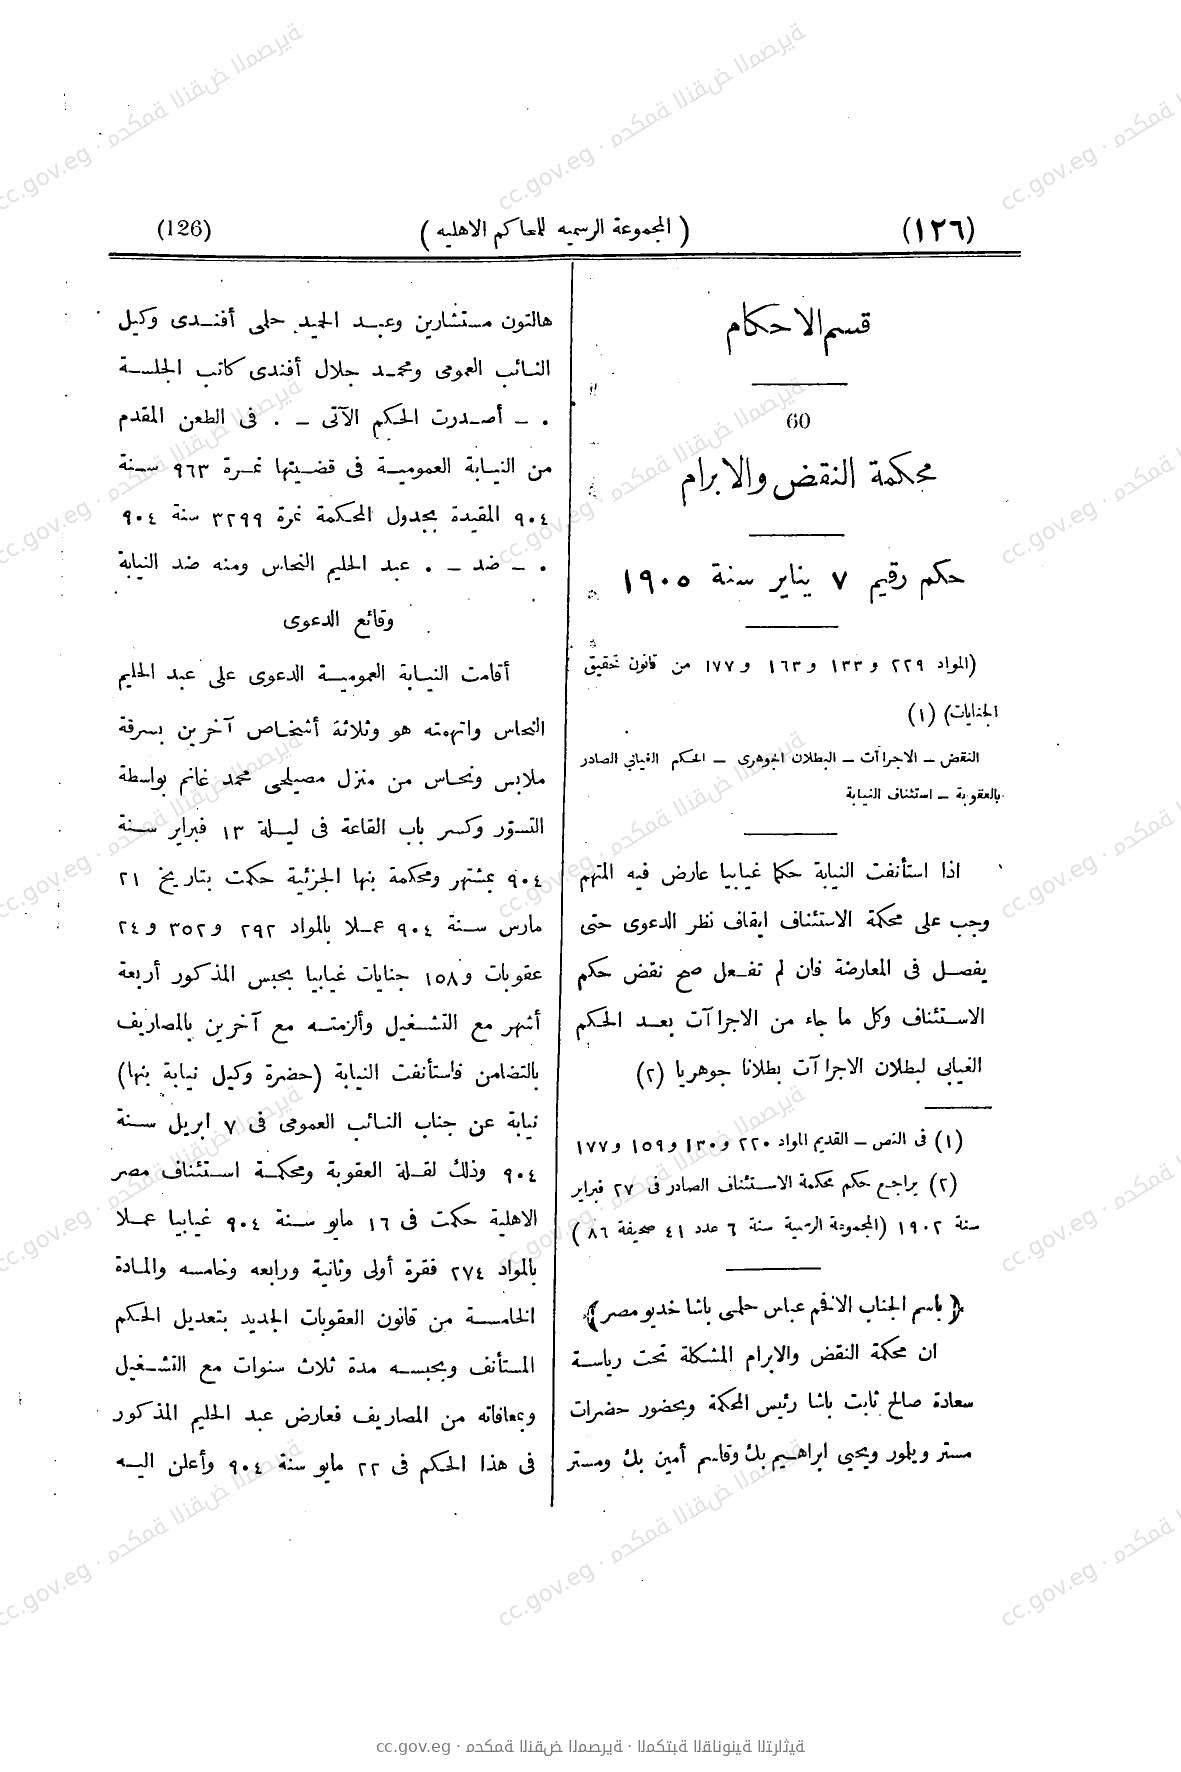 (١٢٦)
( المجموعة الرسميه للمحاكم الاهليه )
(126)
قسم الاحكام
60
محكمة النقض والابرام
حكم رقيم ٧ يناير سنة ١٩٠٥
(المواد ٢٢٩ و١٣٣ و١٦٣ و١٧٧ من قانون تحقيق
الجنايات) (١)
النقض ــ الاجراآت ــ البطلان الجوهرى ــ الحكم الغيابي الصادر
بالعقوبة ــ استئناف النيابة
اذا استأنفت النيابة حكما غيابيا عارض فيه المتهم
وجب على محكمة الاستئناف ايقاف نظر الدعوى حتى
يفصل فى المعارضة فان لم تفعل صح نقض حكم
الاستئناف وكل ما جاء من الاجراآت بعد الحكم
الغيابى لبطلان الاجراآت بطلانا جوهريا (٢)
(١) فى النص ــ القديم المواد ٢٢٠ و١٣٠ و١٥٩ و١٧٧
(٢) يراجع حكم محكمة الاستئناف الصادر فى ٢٧ فبراير
سنة ١٩٠٢ (المجموعة الرسمية سنة ٦ عدد ٤١ صحيفة ٨٦)
﴿ باسم الجناب الافخم عباس حلمى باشا خديو مصر ﴾
ان محكمة النقض والابرام المشكلة تحت رياسة
سعادة صالح ثابت باشا رئيس المحكمة وبحضور حضرات
مستر ويلمور ويحيى ابراهيم بك وقاسم أمين بك ومستر
هالتون مستشارين وعبد الحميد حلمى أفندى وكيل
النائب العمومى ومحمد جلال أفندى كاتب الجلسة
. ــ أصدرت الحكم الآتى ــ . فى الطعن المقدم
من النيابة العمومية فى قضيتها نمرة ٩٦٣ سنة
٩٠٤ المقيدة بجدول المحكمة نمرة ٣٢٩٩ سنة ٩٠٤
. ــ ضد ــ . عبد الحليم النحاس ومنه ضد النيابة
وقائع الدعوى
أقامت النيابة العمومية الدعوى على عبد الحليم
النحاس واتهمته هو وثلاثة أشخاص آخرين بسرقة
ملابس ونحاس من منزل مصيلحى محمد غانم بواسطة
التسوّر وكسر باب القاعة فى ليلة ١٣ فبراير سنة
٩٠٤ بمشتهر ومحكمة بنها الجزئية حكمت بتاريخ ٢١
مارس سنة ٩٠٤ عملا بالمواد ٢٩٢ و٣٥٢ و٢٤
عقوبات و١٥٨ جنايات غيابيا بحبس المذكور أربعة
أشهر مع التشغيل وألزمته مع آخرين بالمصاريف
بالتضامن فاستأنفت النيابة (حضرة وكيل نيابة بنها)
نيابة عن جناب النائب العمومى فى ٧ ابريل سنة
٩٠٤ وذلك لقلة العقوبة ومحكمة استئناف مصر
الاهلية حكمت فى ١٦ مايو سنة ٩٠٤ غيابيا عملا
بالمواد ٢٧٤ فقرة أولى وثانية ورابعه وخامسه والمادة
الخامسة من قانون العقوبات الجديد بتعديل الحكم
المستأنف وبحبسه مدة ثلاث سنوات مع التشغيل
وبمعافاته من المصاريف فعارض عبد الحليم المذكور
فى هذا الحكم فى ٢٢ مايو سنة ٩٠٤ وأعلن اليه
cc.gov.eg · محكمة النقض المصرية · المكتبة القانونية التراثية